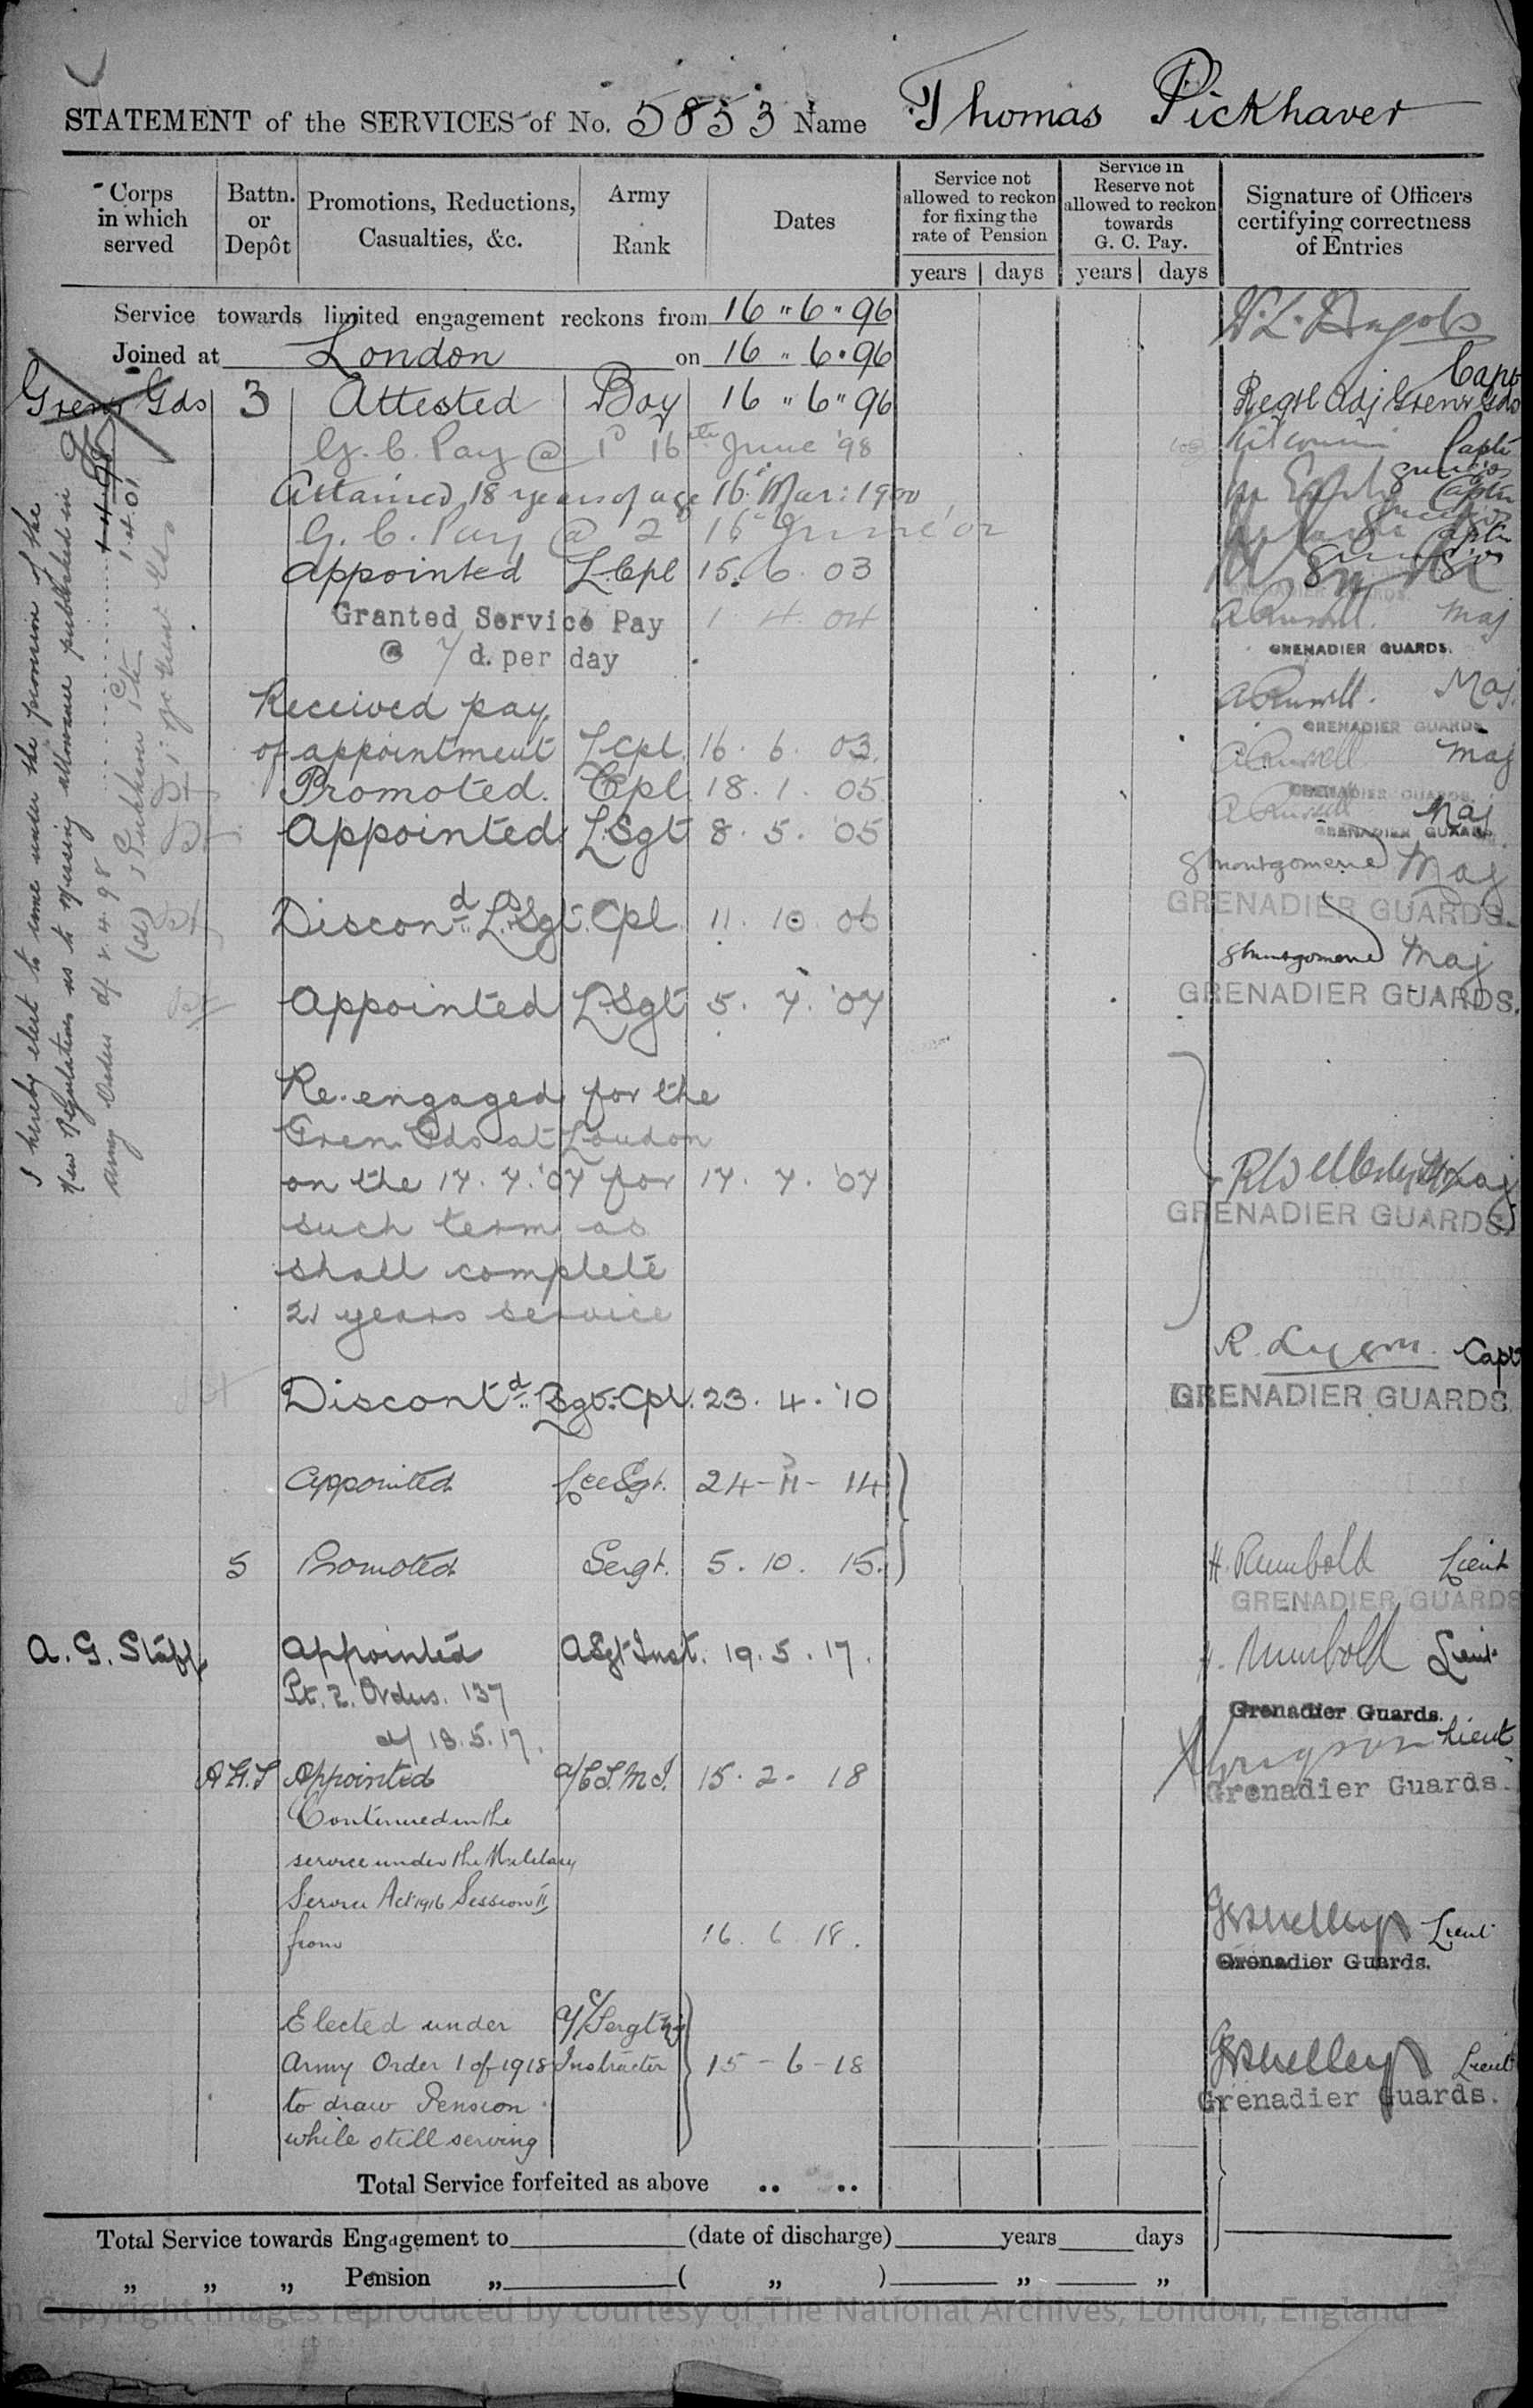 STATEMENT of the SERVICES of No. 5853 Name Thomas Pickhaver
Corps in which served
Battn. or Depôt
Promotions, Reductions, Casualties, &c.
Army Rank
Dates
Service not allowed to reckon for fixing the rate of Pension
years days
Service in Reserve not allowed to reckon towards G. C. Pay.
years days
Signature of Officers certifying correctness of Entries
Service towards limited engagement reckons from 16 " 6 " 96
Joined at London on 16 " 6 " 96
Capt
Grenr Gds 3 Attested Boy 16 " 6 " 96 Regtl Adj Grenr Gds
G. C. Pay @ 1d 16th June '98 Captn
Attained 18 years of age 16 Mar: 1900 Captn
G. C. Pay @ 2 16 June 02 Captn
Appointed L.Cpl 15. 6. 03
Granted Service Pay 1 4 04 A Russell. Maj
@ 7 d. per day GRENADIER GUARDS.
Received pay A Russell. Maj.
GRENADIER GUARDS
of appointment L.Cpl. 16. 6. 03. A Russell Maj
Promoted. Cpl 18. 1. 05
GRENADIER GUARDS
A Russell Maj
Appointed L.Sgt 8. 5. '05
GRENADIER GUARDS
Montgomerie Maj
GRENADIER GUARDS.
Discond L.Sgt. Cpl 11. 10. 06
Montgomerie Maj
GRENADIER GUARDS.
Appointed L.Sgt 5. 7. '07
Re-engaged for the
Gren Gds at London
on the 17. 7. '07 for 17. 7. '07 Maj
GRENADIER GUARDS.
such term as
shall complete
21 years service
R. Lygon. Capt
Discontd L.Sgt. Cpl. 23. 4. '10
GRENADIER GUARDS.
Appointed Lce Sgt. 24-11-14
5 Promoted Sergt. 5. 10. 15. H. Rumbold Lieut
GRENADIER GUARDS
A. G. Staff Appointed A Sgt Inst. 19. 5. 17. H. Rumbold Lieut
Pt. 2. Orders. 137
Grenadier Guards.
d/ 18. 5. 17.
Lieut
A.G.S Appointed a/C.S.M.I. 15. 2. 18
Grenadier Guards.
Continued in the
service under the Military
Service Act 1916 Session II
from 16. 6. 18. Shelley Lieut
Grenadier Guards.
Elected under a/C/Sergt Mj
Army Order 1 of 1918 Instructor 15-6-18 Shelley Lieut
Grenadier Guards.
to draw Pension
while still serving
Total Service forfeited as above .. ..
Total Service towards Engagement to (date of discharge) years days
„ „ „ Pension „ ( „ ) „ „
I hereby elect to come under the provision of the
New Regulations as to Messing allowance published in
Army Order of 1.4.98
(sd) T Pickhaver Pte
1.4.98
1.4.01
Copyright images reproduced by courtesy of The National Archives, London, England